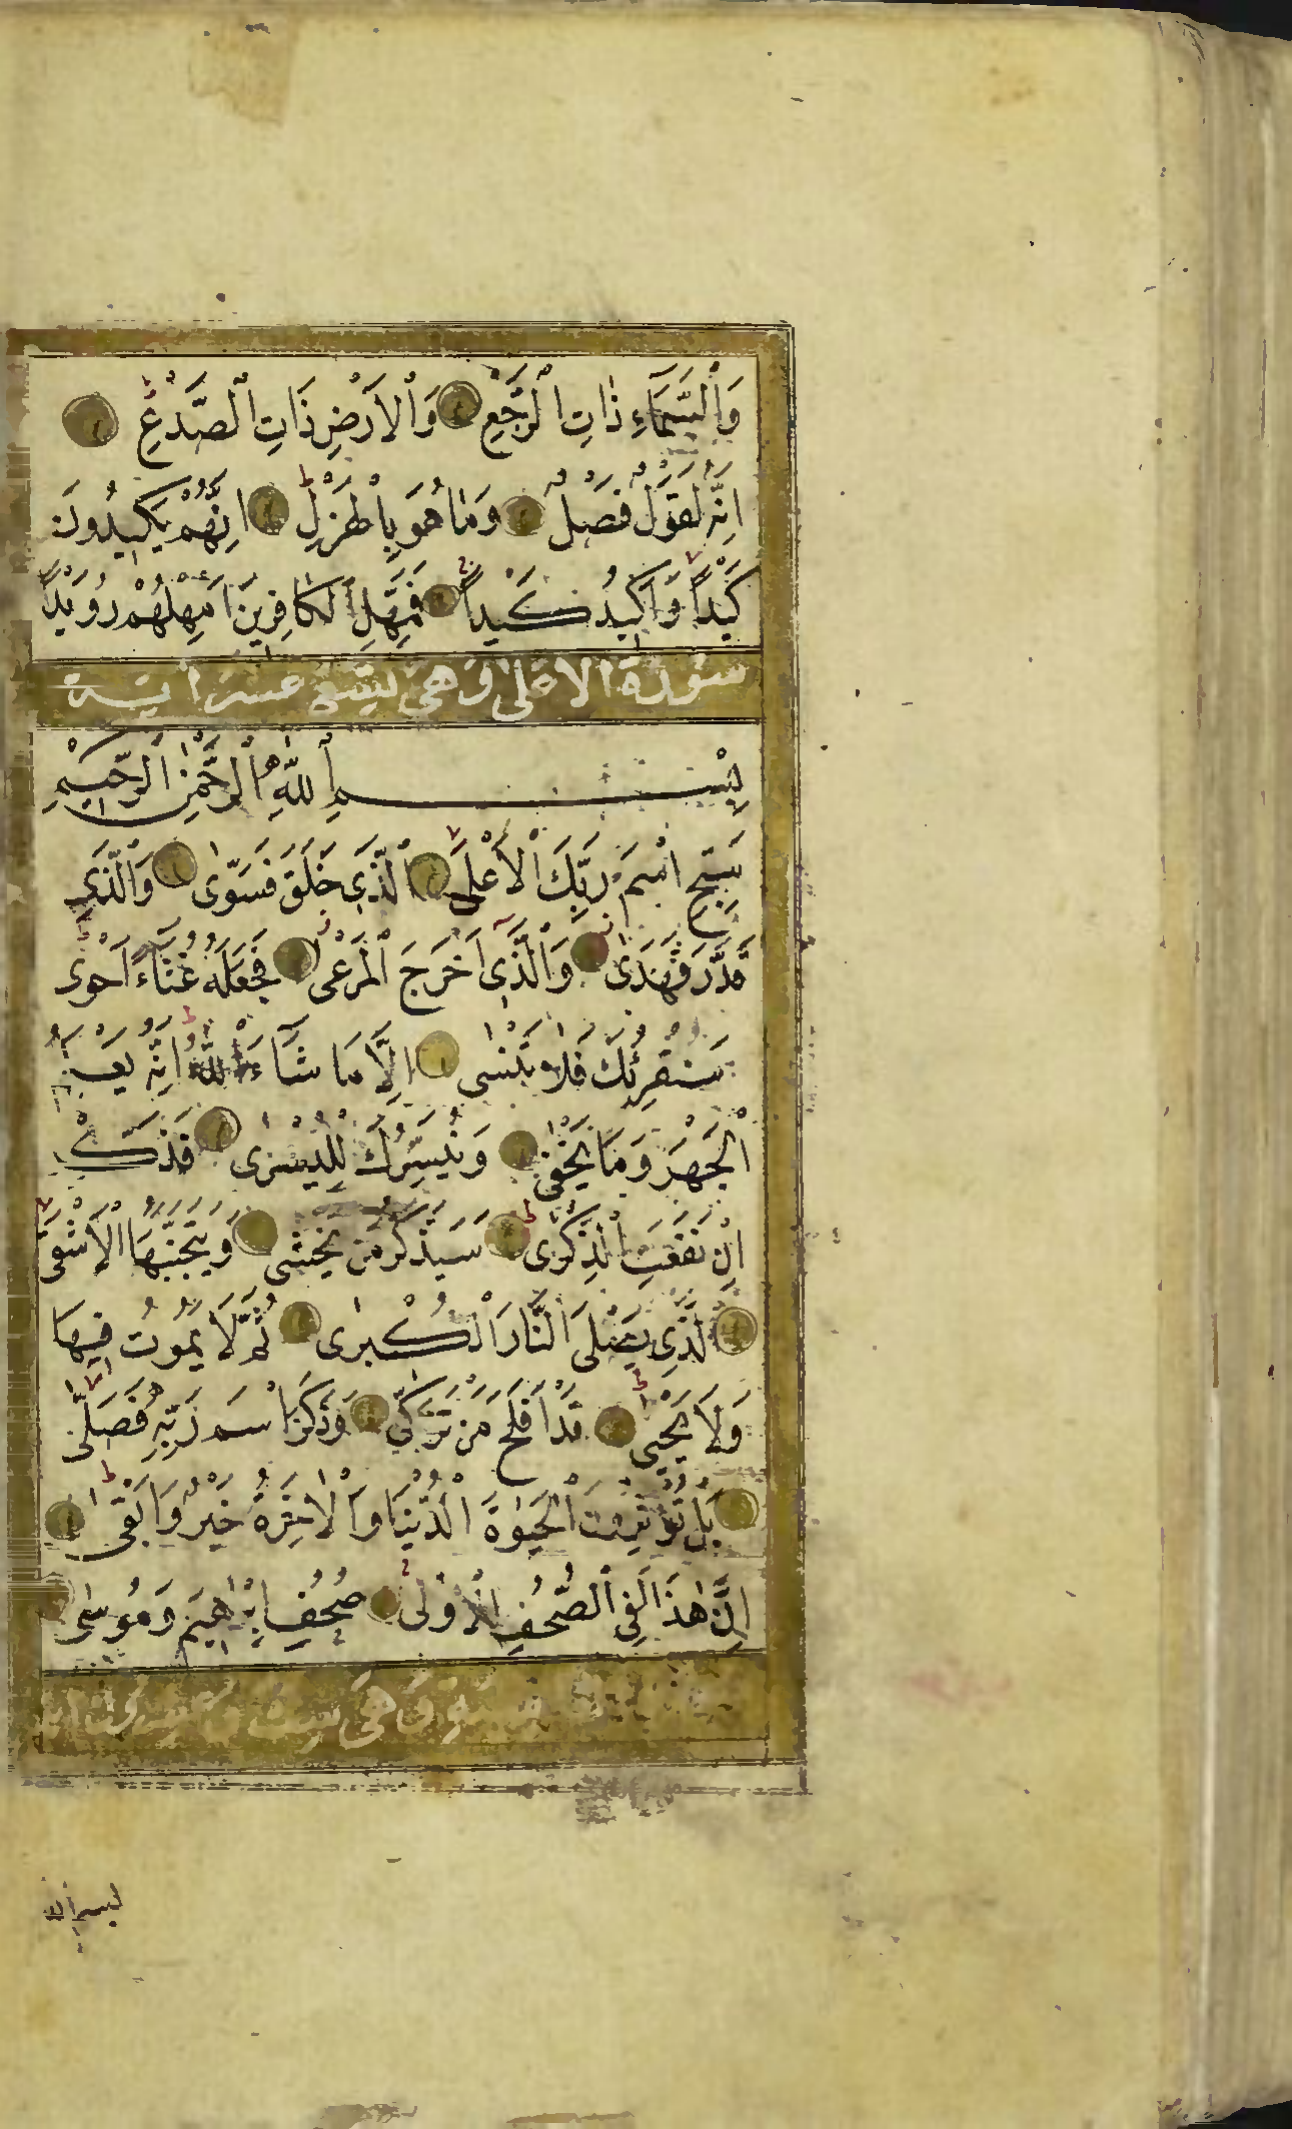 وَٱلسَّمَآءِ ذَاتِ ٱلرَّجْعِ وَٱلْاَرْضِ ذَاتِ ٱلصَّدْعِ
اِنَّهُ لَقَوْلٌ فَصْلٌ وَمَا هُوَ بِالْهَزْلِ اِنَّهُمْ يَكِيدُونَ
كَيْدًا وَاَكِيدُ كَيْدًا فَمَهِّلِ الْكَافِرِينَ اَمْهِلْهُمْ رُوَيْدًا
سورة الاعلى وهى تسع عشر اية
بِسْمِ ٱللّٰهِ ٱلرَّحْمٰنِ ٱلرَّحِيمِ
سَبِّحِ اسْمَ رَبِّكَ ٱلْاَعْلَى ٱلَّذِى خَلَقَ فَسَوّٰى وَٱلَّذِى
قَدَّرَ فَهَدٰى وَٱلَّذِى اَخْرَجَ ٱلْمَرْعٰى فَجَعَلَهُ غُثَآءً اَحْوٰى
سَنُقْرِئُكَ فَلَا تَنْسٰى اِلَّا مَا شَآءَ ٱللّٰهُ اِنَّهُ
ٱلْجَهْرَ وَمَا يَخْفٰى وَنُيَسِّرُكَ لِلْيُسْرٰى فَذَكِّرْ
اِنْ نَفَعَتِ ٱلذِّكْرٰى سَيَذَّكَّرُ مَنْ يَخْشٰى وَيَتَجَنَّبُهَا ٱلْاَشْقَى
ٱلَّذِى يَصْلَى ٱلنَّارَ ٱلْكُبْرٰى ثُمَّ لَا يَمُوتُ فِيهَا
وَلَا يَحْيٰى قَدْ اَفْلَحَ مَنْ تَزَكّٰى وَذَكَرَ اسْمَ رَبِّهِ فَصَلّٰى
بَلْ تُؤْثِرُونَ ٱلْحَيٰوةَ ٱلدُّنْيَا وَٱلْاٰخِرَةُ خَيْرٌ وَاَبْقٰى
اِنَّ هٰذَا لَفِى ٱلصُّحُفِ ٱلْاُولٰى صُحُفِ اِبْرٰهِيمَ وَمُوسٰى
وهى ست وعشرون
بسم الله